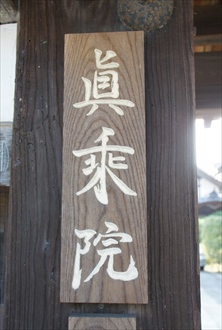 眞乗院